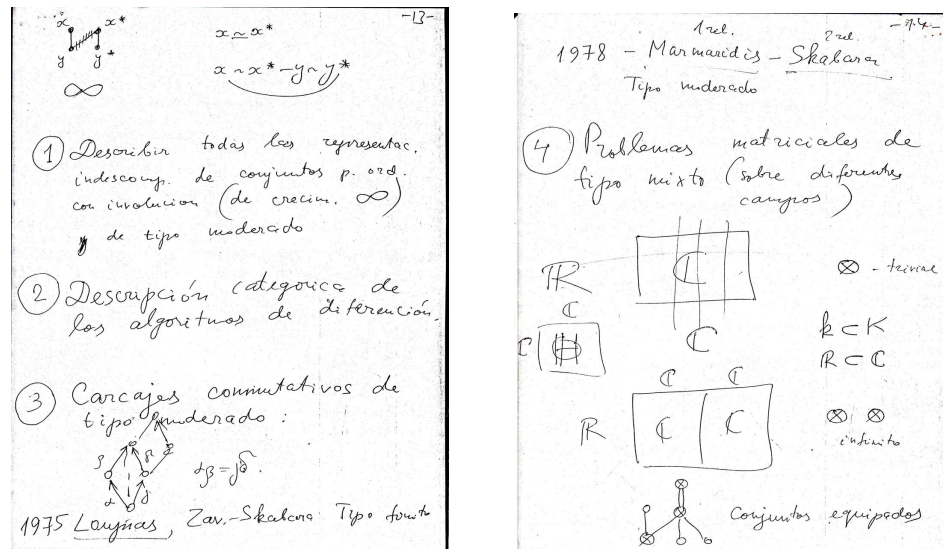 -13-
x x*
y y*
∞
x ≃ x*
x ~ x* - y ~ y*
① Describir todas las representac.
indescomp. de conjuntos p. ord.
con involucion (de crecim. ∞)
y de tipo moderado
② Descripción categorica de
los algoritmos de diferención.
③ Carcajes conmutativos de
tipo moderado:
β δ
α γ
αβ=γδ.
1975 Zav.-Skabara Tipo finito
-14-
1 rel. 2 rel.
1978 - Marmaridis - Skabara
Tipo moderado
④ Problemas matriciales de
tipo mixto (sobre diferentes
campos)
ℝ ℂ
ℂ
⊗ - trivial
ℂ
ℂ
k ⊂ K
ℝ ⊂ ℂ
ℂ ℂ
ℝ ℂ ℂ
⊗ ⊗
infinito
Conjuntos equipados